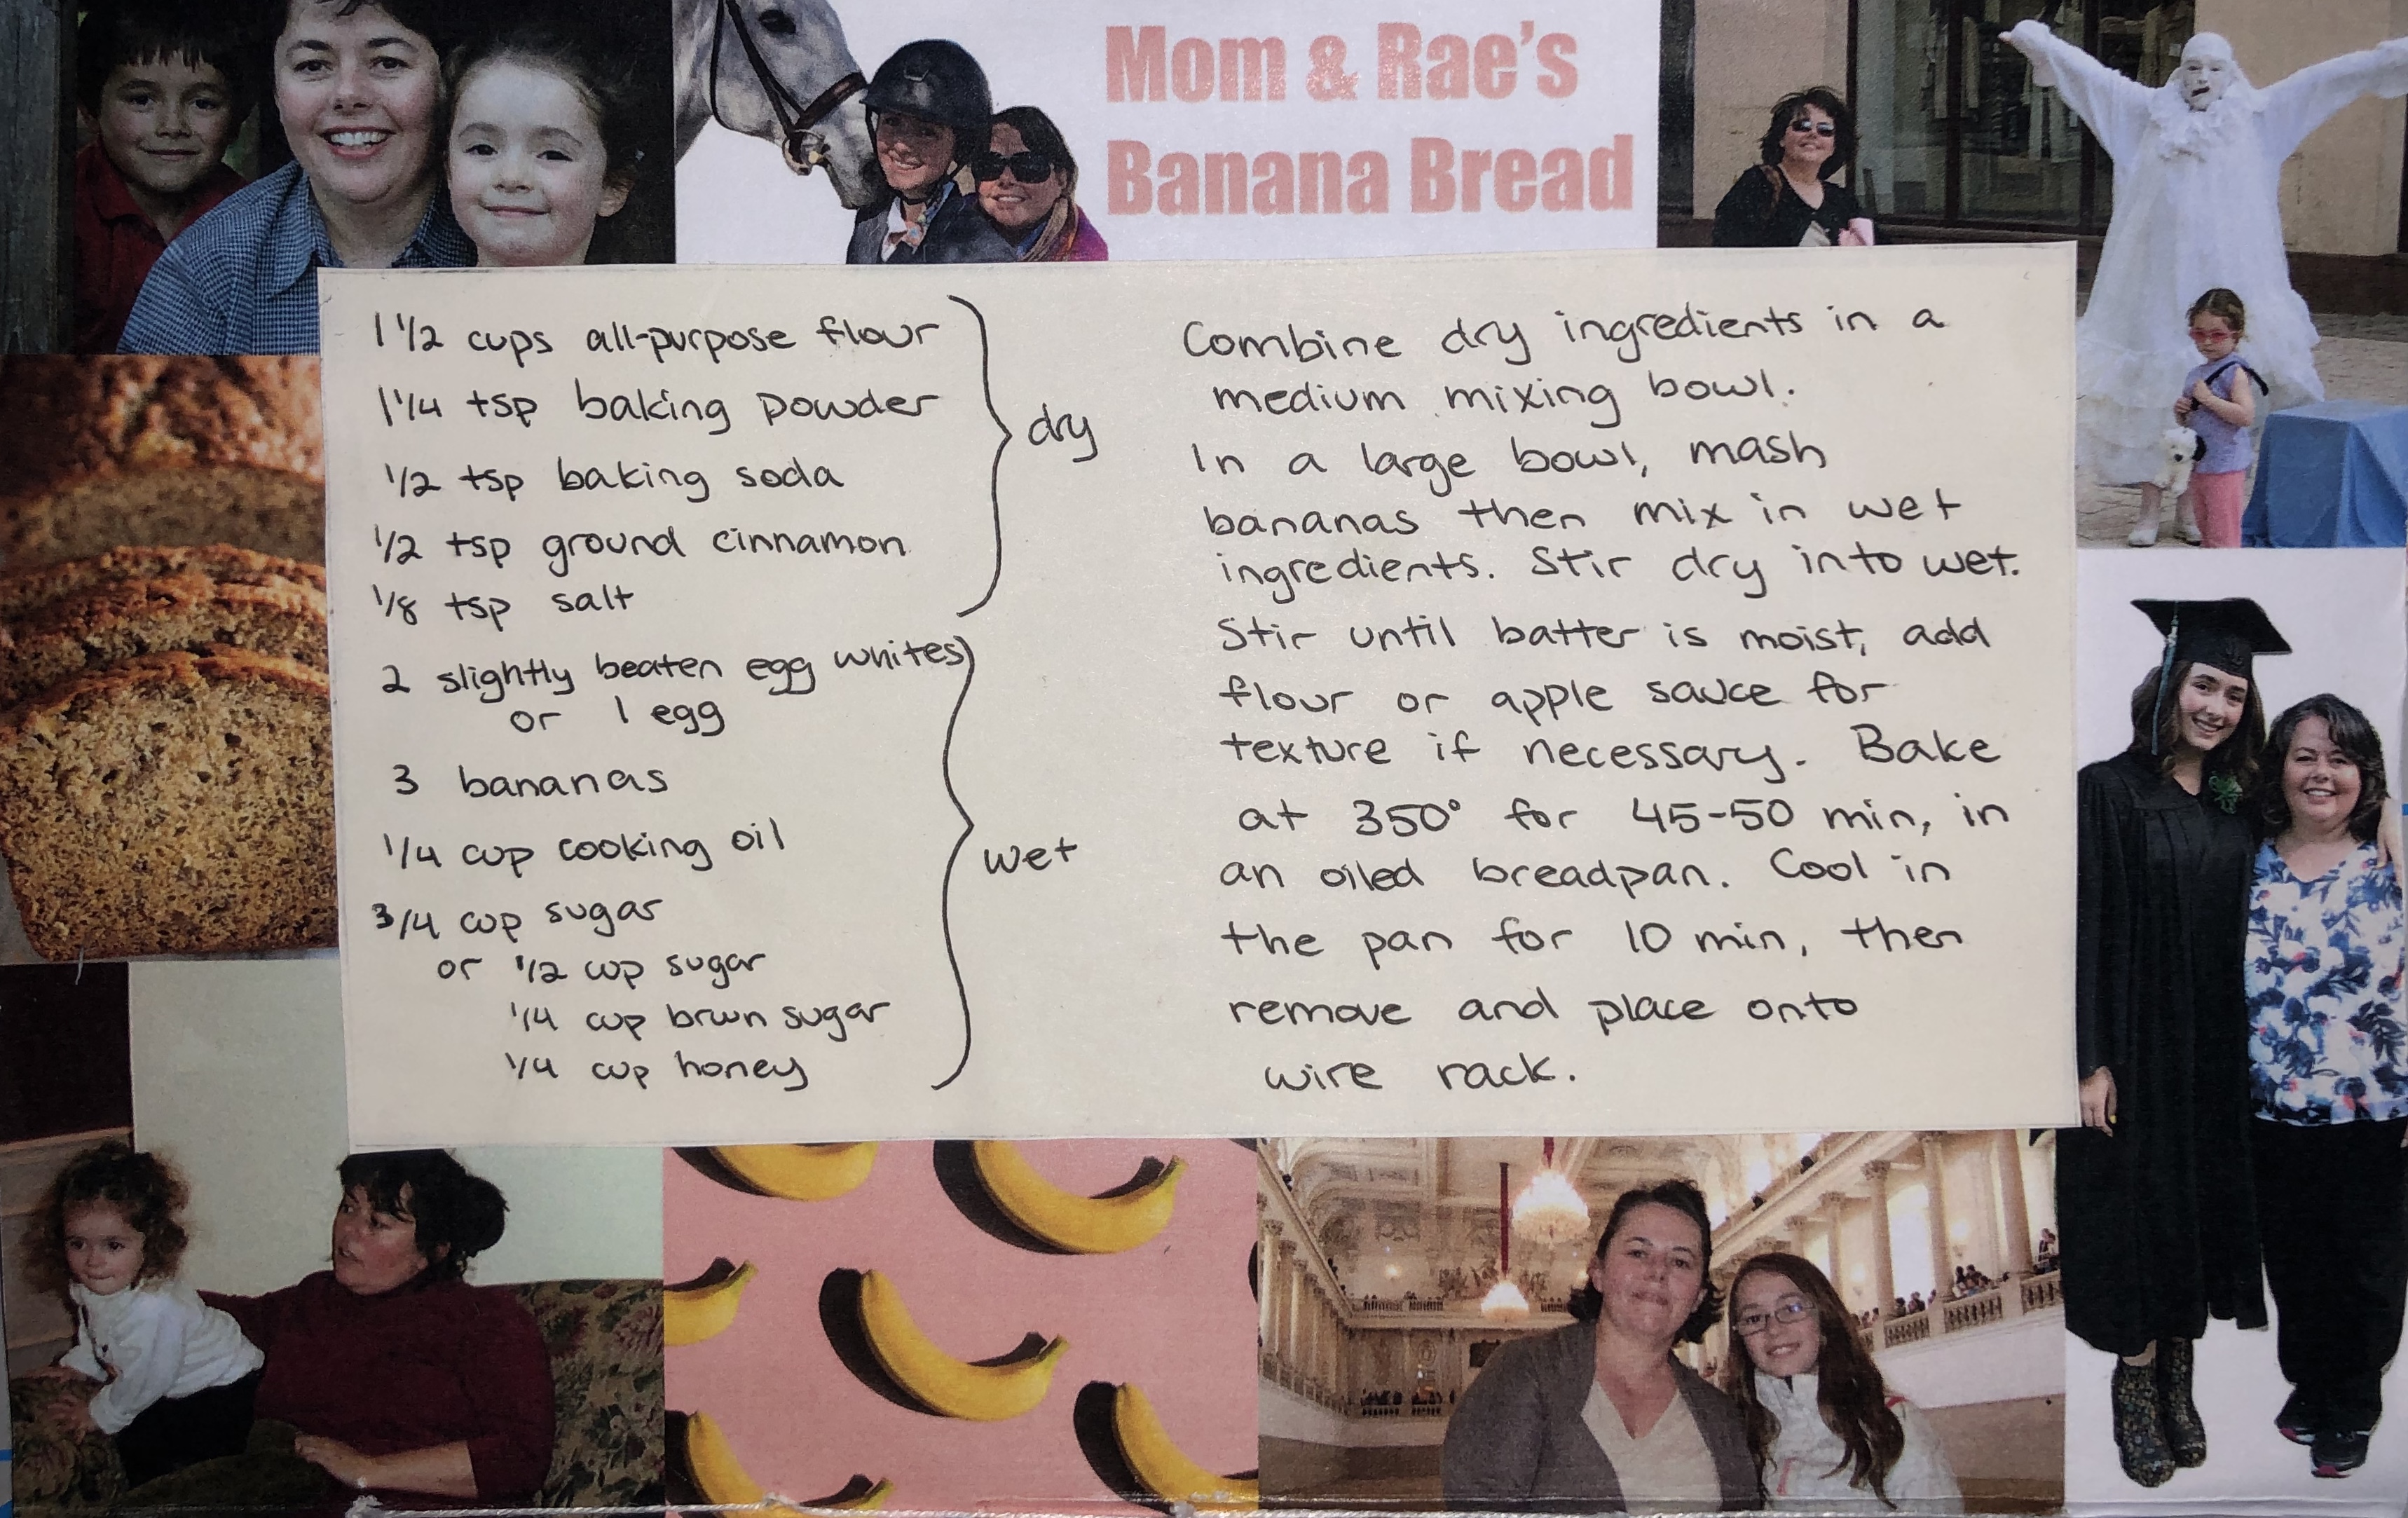 Mom & Rae's
Banana Bread
1 1/2 cups all-purpose flour
1 1/4 tsp baking powder
1/2 tsp baking soda
1/2 tsp ground cinnamon
1/8 tsp salt
dry
2 slightly beaten egg whites
or 1 egg
3 bananas
1/4 cup cooking oil
3/4 cup sugar
or 1/2 cup sugar
1/4 cup brwn sugar
1/4 cup honey
wet
Combine dry ingredients in a
medium mixing bowl.
In a large bowl, mash
bananas then mix in wet
ingredients. Stir dry into wet.
Stir until batter is moist, add
flour or apple sauce for
texture if necessary. Bake
at 350° for 45-50 min, in
an oiled breadpan. Cool in
the pan for 10 min, then
remove and place onto
wire rack.